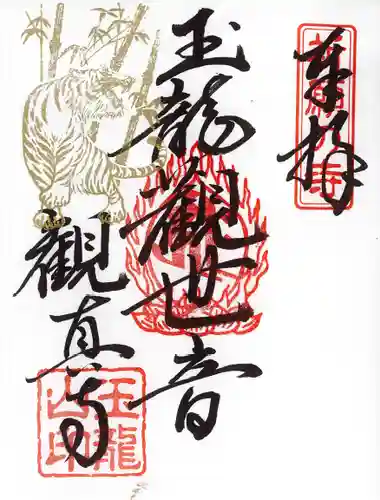 奉拝
玉龍觀世音
觀真寺
玉龍
山印